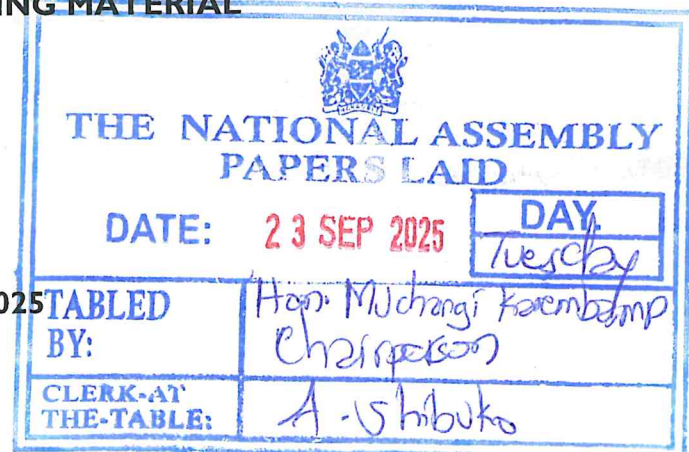 ING MATERIAL
THE NATIONAL ASSEMBLY
PAPERS LAID
DATE: 23 SEP 2025
DAY.
Tuesday
025
TABLED BY:
Hon. Muchangi Karemba, MP
Chairperson
CLERK-AT THE-TABLE:
A. Shibuko